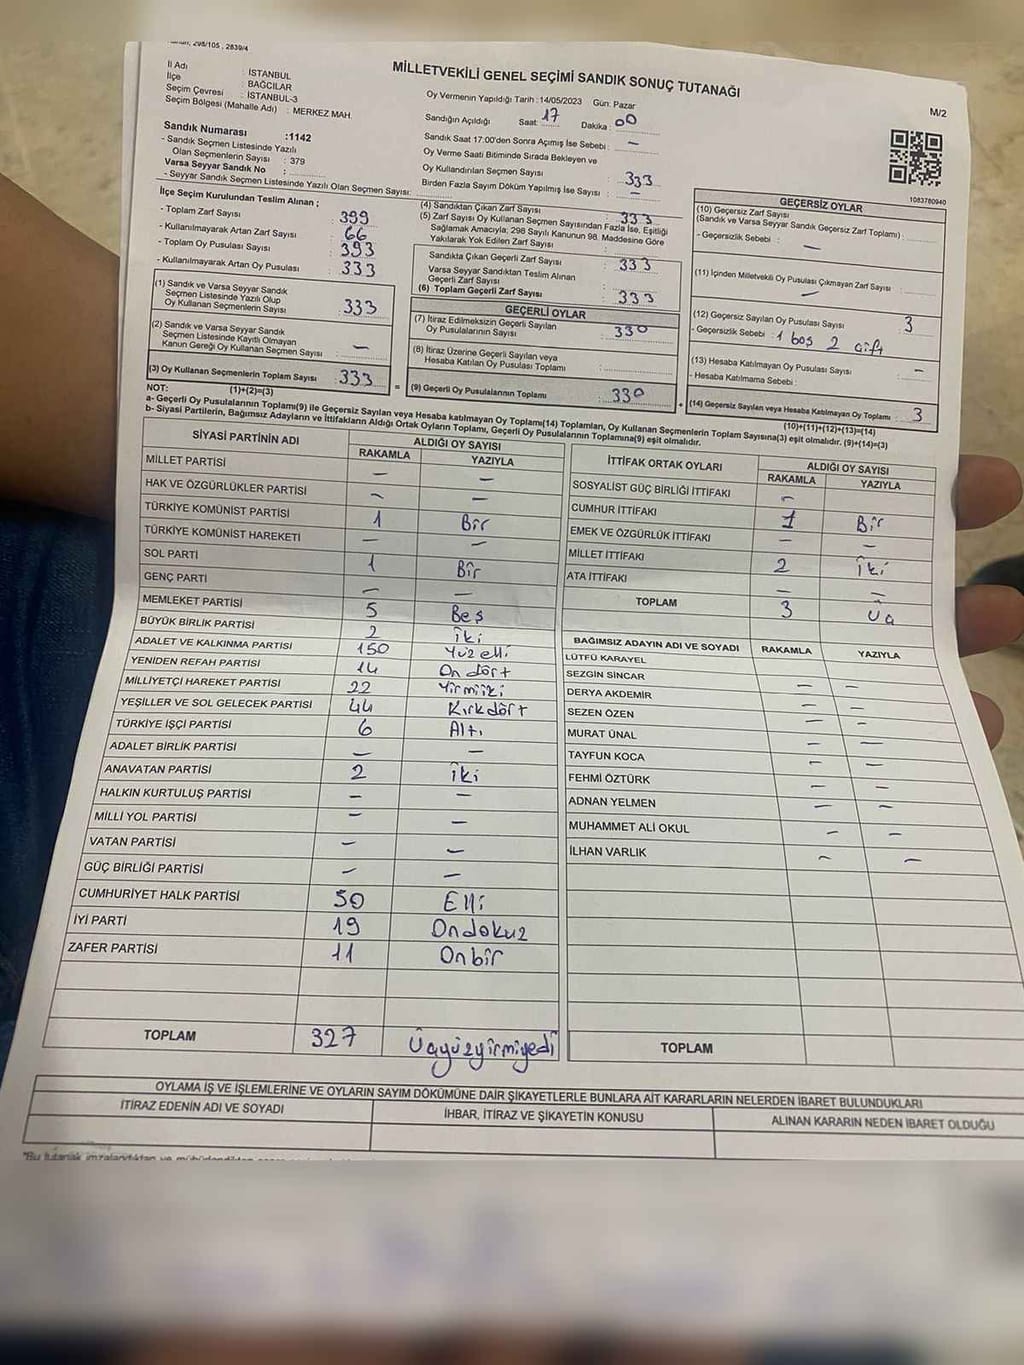 298/105, 2839/4
MİLLETVEKİLİ GENEL SEÇİMİ SANDIK SONUÇ TUTANAĞI
M/2
İl Adı : İSTANBUL
İlçe : BAĞCILAR
Seçim Çevresi : İSTANBUL-3
Seçim Bölgesi (Mahalle Adı) : MERKEZ MAH.
Sandık Numarası :1142
- Sandık Seçmen Listesinde Yazılı
Olan Seçmenlerin Sayısı : 379
Varsa Seyyar Sandık No :
- Seyyar Sandık Seçmen Listesinde Yazılı Olan Seçmen Sayısı:
Oy Vermenin Yapıldığı Tarih :14/05/2023 Gün: Pazar
Sandığın Açıldığı Saat: 17 Dakika : 00
Sandık Saat 17:00'den Sonra Açımış İse Sebebi : —
Oy Verme Saati Bitiminde Sırada Bekleyen ve
Oy Kullandırılan Seçmen Sayısı : 333
Birden Fazla Sayım Döküm Yapılmış İse Sayısı : —
1083780940
İlçe Seçim Kurulundan Teslim Alınan ;
- Toplam Zarf Sayısı : 399
- Kullanılmayarak Artan Zarf Sayısı : 66
- Toplam Oy Pusulası Sayısı : 393
- Kullanılmayarak Artan Oy Pusulası : 333
(1) Sandık ve Varsa Seyyar Sandık
Seçmen Listesinde Yazılı Olup
Oy Kullanan Seçmenlerin Sayısı : 333
(2) Sandık ve Varsa Seyyar Sandık
Seçmen Listesinde Kayıtlı Olmayan
Kanun Gereği Oy Kullanan Seçmen Sayısı : —
(3) Oy Kullanan Seçmenlerin Toplam Sayısı : 333
(1)+(2)=(3)
(4) Sandıktan Çıkan Zarf Sayısı : 333
(5) Zarf Sayısı Oy Kullanan Seçmen Sayısından Fazla İse, Eşitliği
Sağlamak Amacıyla; 298 Sayılı Kanunun 98. Maddesine Göre
Yakılarak Yok Edilen Zarf Sayısı :
Sandıkta Çıkan Geçerli Zarf Sayısı : 333
Varsa Seyyar Sandıktan Teslim Alınan
Geçerli Zarf Sayısı :
(6) Toplam Geçerli Zarf Sayısı : 333
GEÇERLİ OYLAR
(7) İtiraz Edilmeksizin Geçerli Sayılan
Oy Pusulalarının Sayısı : 330
(8) İtiraz Üzerine Geçerli Sayılan veya
Hesaba Katılan Oy Pusulası Toplamı :
= (9) Geçerli Oy Pusulalarının Toplamı : 330 +
GEÇERSİZ OYLAR
(10) Geçersiz Zarf Sayısı
(Sandık ve Varsa Seyyar Sandık Geçersiz Zarf Toplamı) :
- Geçersizlik Sebebi : —
(11) İçinden Milletvekili Oy Pusulası Çıkmayan Zarf Sayısı :
—
(12) Geçersiz Sayılan Oy Pusulası Sayısı : 3
- Geçersizlik Sebebi : 1 boş 2 çift
(13) Hesaba Katılmayan Oy Pusulası Sayısı : —
- Hesaba Katılmama Sebebi :
(14) Geçersiz Sayılan veya Hesaba Katılmayan Oy Toplamı : 3
(10)+(11)+(12)+(13)=(14)
NOT:
a- Geçerli Oy Pusulalarının Toplamı(9) ile Geçersiz Sayılan veya Hesaba katılmayan Oy Toplamı(14) Toplamları, Oy Kullanan Seçmenlerin Toplam Sayısına(3) eşit olmalıdır. (9)+(14)=(3)
b- Siyasi Partilerin, Bağımsız Adayların ve İttifakların Aldığı Ortak Oyların Toplamı, Geçerli Oy Pusulalarının Toplamına(9) eşit olmalıdır.
SİYASİ PARTİNİN ADI ALDIĞI OY SAYISI
RAKAMLA YAZIYLA
MİLLET PARTİSİ — —
HAK VE ÖZGÜRLÜKLER PARTİSİ — —
TÜRKİYE KOMÜNİST PARTİSİ 1 Bir
TÜRKİYE KOMÜNİST HAREKETİ — —
SOL PARTİ 1 Bir
GENÇ PARTİ — —
MEMLEKET PARTİSİ 5 Beş
BÜYÜK BİRLİK PARTİSİ 2 İki
ADALET VE KALKINMA PARTİSİ 150 Yüz elli
YENİDEN REFAH PARTİSİ 14 On dört
MİLLİYETÇİ HAREKET PARTİSİ 22 Yirmiiki
YEŞİLLER VE SOL GELECEK PARTİSİ 44 Kırk dört
TÜRKİYE İŞÇİ PARTİSİ 6 Altı
ADALET BİRLİK PARTİSİ — —
ANAVATAN PARTİSİ 2 İki
HALKIN KURTULUŞ PARTİSİ — —
MİLLİ YOL PARTİSİ — —
VATAN PARTİSİ — —
GÜÇ BİRLİĞİ PARTİSİ — —
CUMHURİYET HALK PARTİSİ 50 Elli
İYİ PARTİ 19 Ondokuz
ZAFER PARTİSİ 11 Onbir
TOPLAM 327 Üçyüzyirmiyedi
İTTİFAK ORTAK OYLARI ALDIĞI OY SAYISI
RAKAMLA YAZIYLA
SOSYALİST GÜÇ BİRLİĞİ İTTİFAKI —
CUMHUR İTTİFAKI 1 Bir
EMEK VE ÖZGÜRLÜK İTTİFAKI — —
MİLLET İTTİFAKI 2 İki
ATA İTTİFAKI — —
TOPLAM 3 Üç
BAĞIMSIZ ADAYIN ADI VE SOYADI RAKAMLA YAZIYLA
LÜTFÜ KARAYEL — —
SEZGİN SİNCAR — —
DERYA AKDEMİR — —
SEZEN ÖZEN — —
MURAT ÜNAL — —
TAYFUN KOCA — —
FEHMİ ÖZTÜRK — —
ADNAN YELMEN — —
MUHAMMET ALİ OKUL — —
İLHAN VARLIK
TOPLAM
OYLAMA İŞ VE İŞLEMLERİNE VE OYLARIN SAYIM DÖKÜMÜNE DAİR ŞİKAYETLERLE BUNLARA AİT KARARLARIN NELERDEN İBARET BULUNDUKLARI
İTİRAZ EDENİN ADI VE SOYADI İHBAR, İTİRAZ VE ŞİKAYETİN KONUSU ALINAN KARARIN NEDEN İBARET OLDUĞU
"Bu tutanak imzalandıktan ve